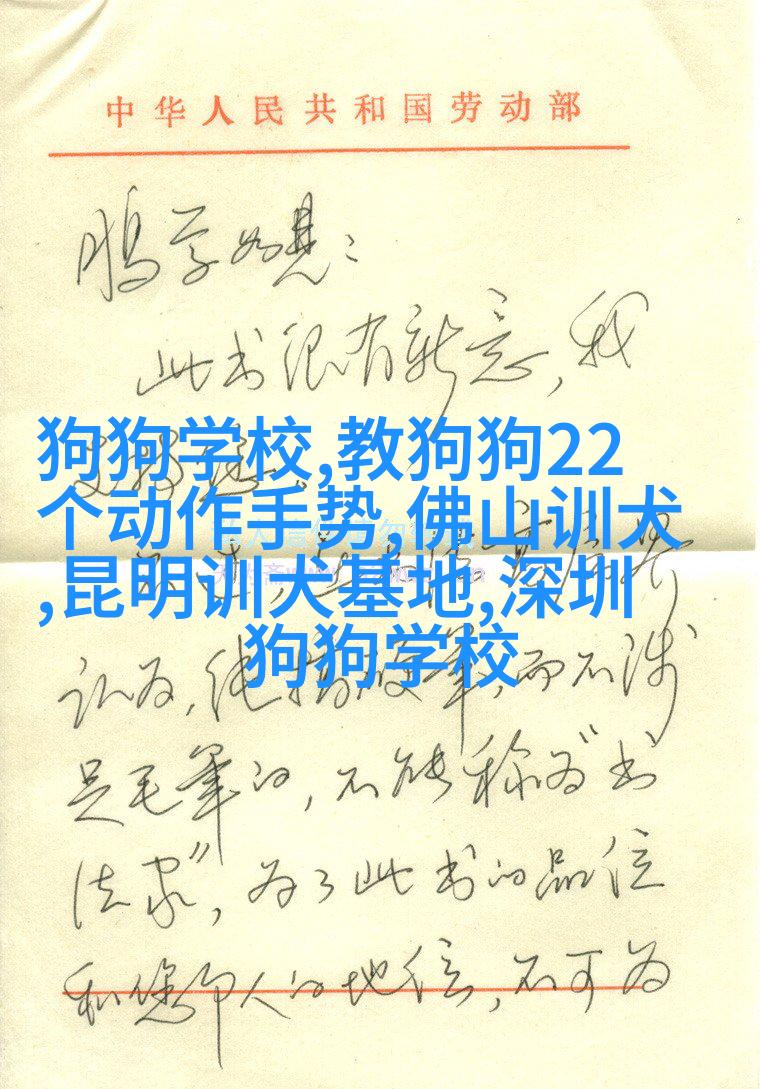 中华人民共和国劳动部
鹏学如晤：
此书很有新意，我
狗狗学校,教狗狗22
个动作手势,佛山训犬
,昆明训犬基地,深圳
狗狗学校
认为，
笔，而不涉
足毛笔的，不能称为“书
法家”，为了此书的品位
和您个人的地位，不可为